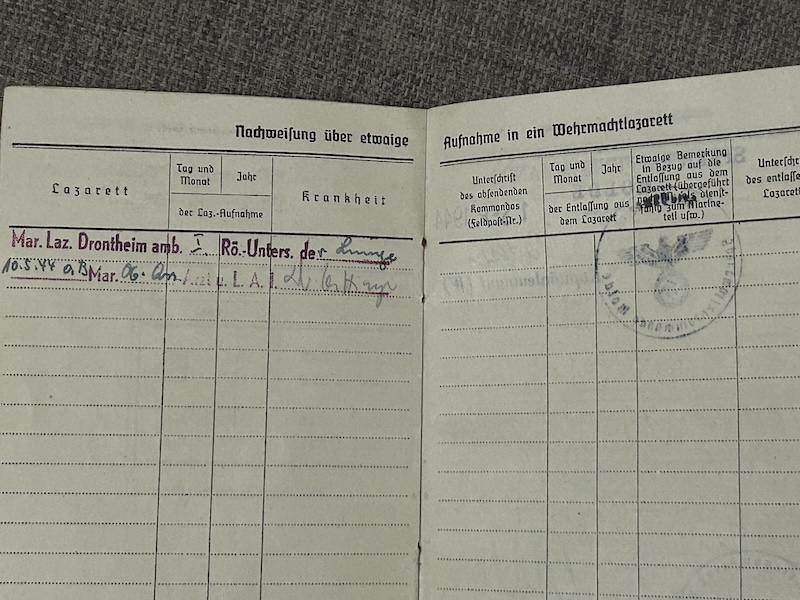 Nachweisung über etwaige
Lazarett
Tag und Monat
Jahr
der Laz.-Aufnahme
Krankheit
Mar. Laz. Drontheim amb. I. Rö.-Unters. der Lunge
10.5.44 Mar. u. L. A. I.
Aufnahme in ein Wehrmachtlazarett
Unterschrift
des absendenden
Kommandos
(Feldpost-Nr.)
Tag und Monat
Jahr
der Entlassung aus
dem Lazarett
Etwaige Bemerkung
in Bezug auf die
Entlassung aus dem
Lazarett (übergeführt
als dienst-
zum Marine-
teil usw.)
Unterschr
des entlasse
Lazaret